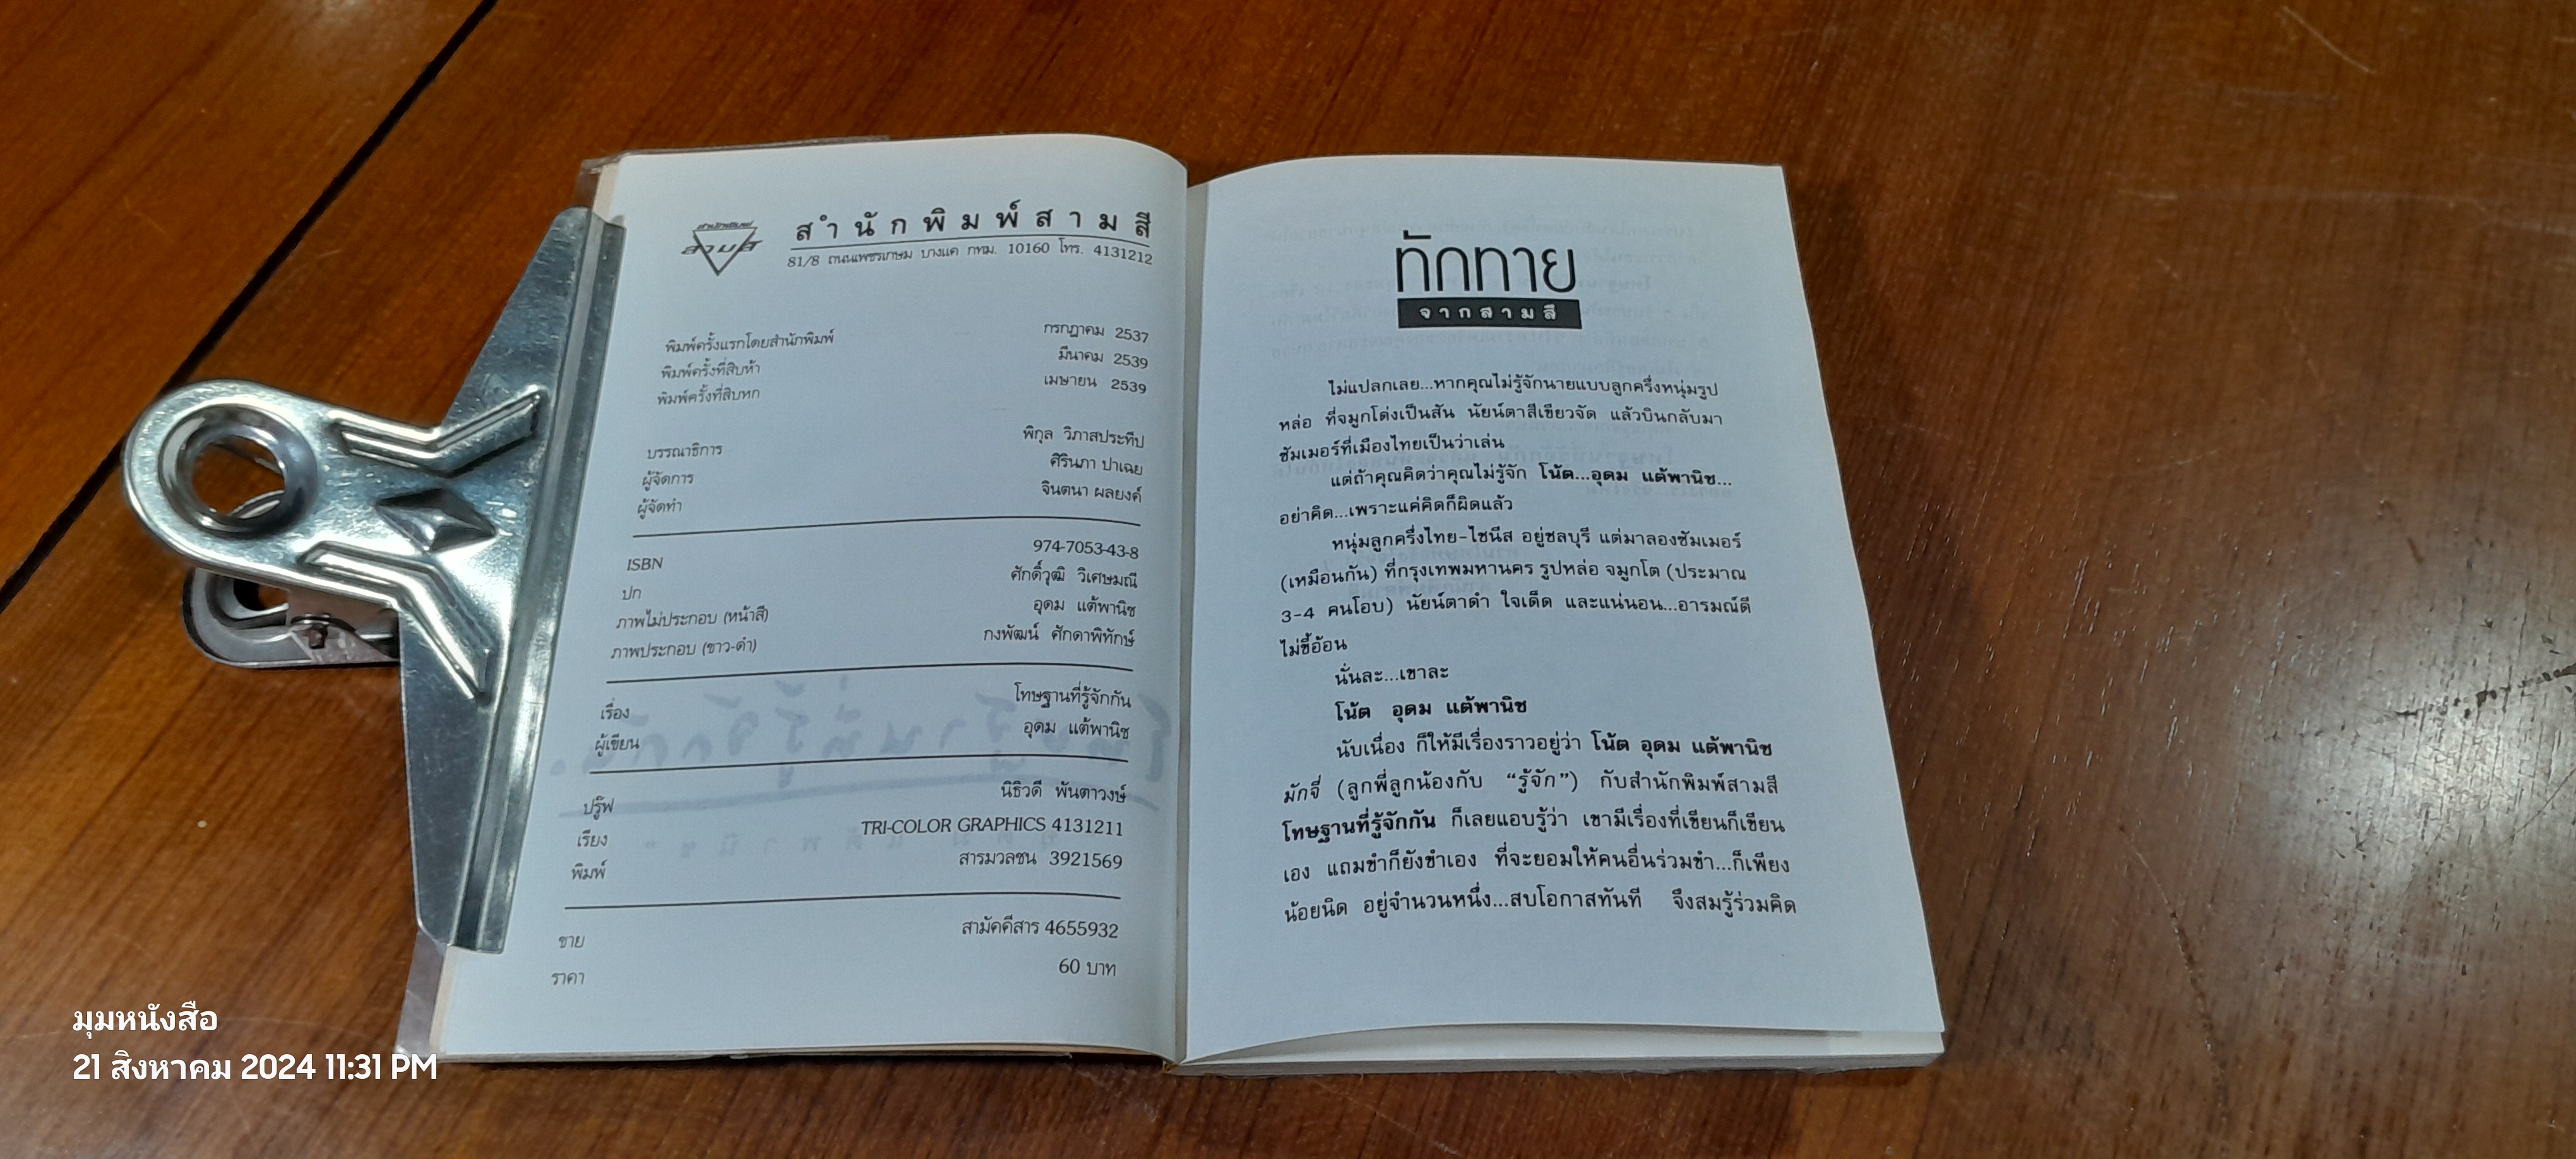 สำนักพิมพ์
สามสี
สำนักพิมพ์สามสี
81/8 ถนนเพชรเกษม บางแค กทม. 10160 โทร. 4131212
พิมพ์ครั้งแรกโดยสำนักพิมพ์ กรกฎาคม 2537
พิมพ์ครั้งที่สิบห้า มีนาคม 2539
พิมพ์ครั้งที่สิบหก เมษายน 2539
บรรณาธิการ พิกุล วิภาสประทีป
ผู้จัดการ ศิรินภา ปาเฉย
ผู้จัดทำ จินตนา ผลยงค์
ISBN 974-7053-43-8
ปก ศักดิ์วุฒิ วิเศษมณี
ภาพไม่ประกอบ (หน้าสี) อุดม แต้พานิช
ภาพประกอบ (ขาว-ดำ) กงพัฒน์ ศักดาพิทักษ์
เรื่อง โทษฐานที่รู้จักกัน
ผู้เขียน อุดม แต้พานิช
ปรู๊ฟ นิธิวดี พันตาวงษ์
เรียง TRI-COLOR GRAPHICS 4131211
พิมพ์ สารมวลชน 3921569
ขาย สามัคคีสาร 4655932
ราคา 60 บาท
ทักทาย
จากสามสี
ไม่แปลกเลย...หากคุณไม่รู้จักนายแบบลูกครึ่งหนุ่มรูป
หล่อ ที่จมูกโด่งเป็นสัน นัยน์ตาสีเขียวจัด แล้วบินกลับมา
ซัมเมอร์ที่เมืองไทยเป็นว่าเล่น
แต่ถ้าคุณคิดว่าคุณไม่รู้จัก โน้ต...อุดม แต้พานิช...
อย่าคิด...เพราะแค่คิดก็ผิดแล้ว
หนุ่มลูกครึ่งไทย-ไชนีส อยู่ชลบุรี แต่มาลองซัมเมอร์
(เหมือนกัน) ที่กรุงเทพมหานคร รูปหล่อ จมูกโต (ประมาณ
3-4 คนโอบ) นัยน์ตาดำ ใจเด็ด และแน่นอน...อารมณ์ดี
ไม่ขี้อ้อน
นั่นละ...เขาละ
โน้ต อุดม แต้พานิช
นับเนื่อง ก็ให้มีเรื่องราวอยู่ว่า โน้ต อุดม แต้พานิช
มักจี่ (ลูกพี่ลูกน้องกับ “รู้จัก”) กับสำนักพิมพ์สามสี
โทษฐานที่รู้จักกัน ก็เลยแอบรู้ว่า เขามีเรื่องที่เขียนก็เขียน
เอง แถมขำก็ยังขำเอง ที่จะยอมให้คนอื่นร่วมขำ...ก็เพียง
น้อยนิด อยู่จำนวนหนึ่ง...สบโอกาสทันที จึงสมรู้ร่วมคิด
มุมหนังสือ
21 สิงหาคม 2024 11:31 PM